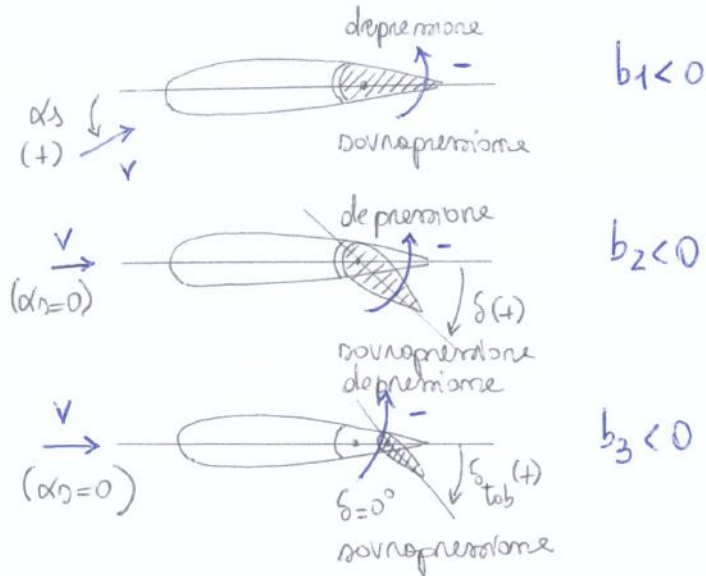 depressione
−
b1<0
αs
(+)
V
sovrapressione
depressione
V
−
b2<0
(αs=0)
δ(+)
sovrapressione
depressione
V
−
b3<0
(αs=0)
δ=0°
δtab(+)
sovrapressione